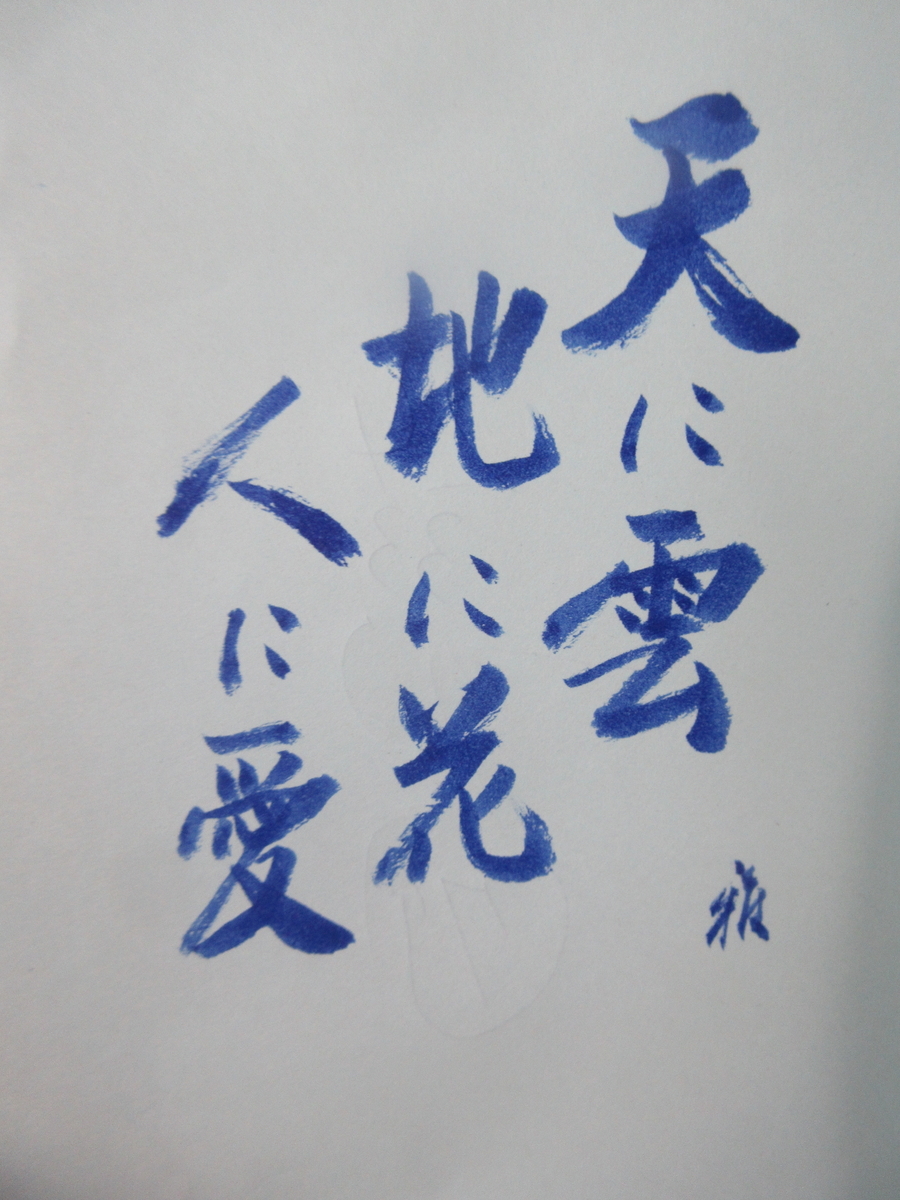 天に雲
地に花
人に愛
雅